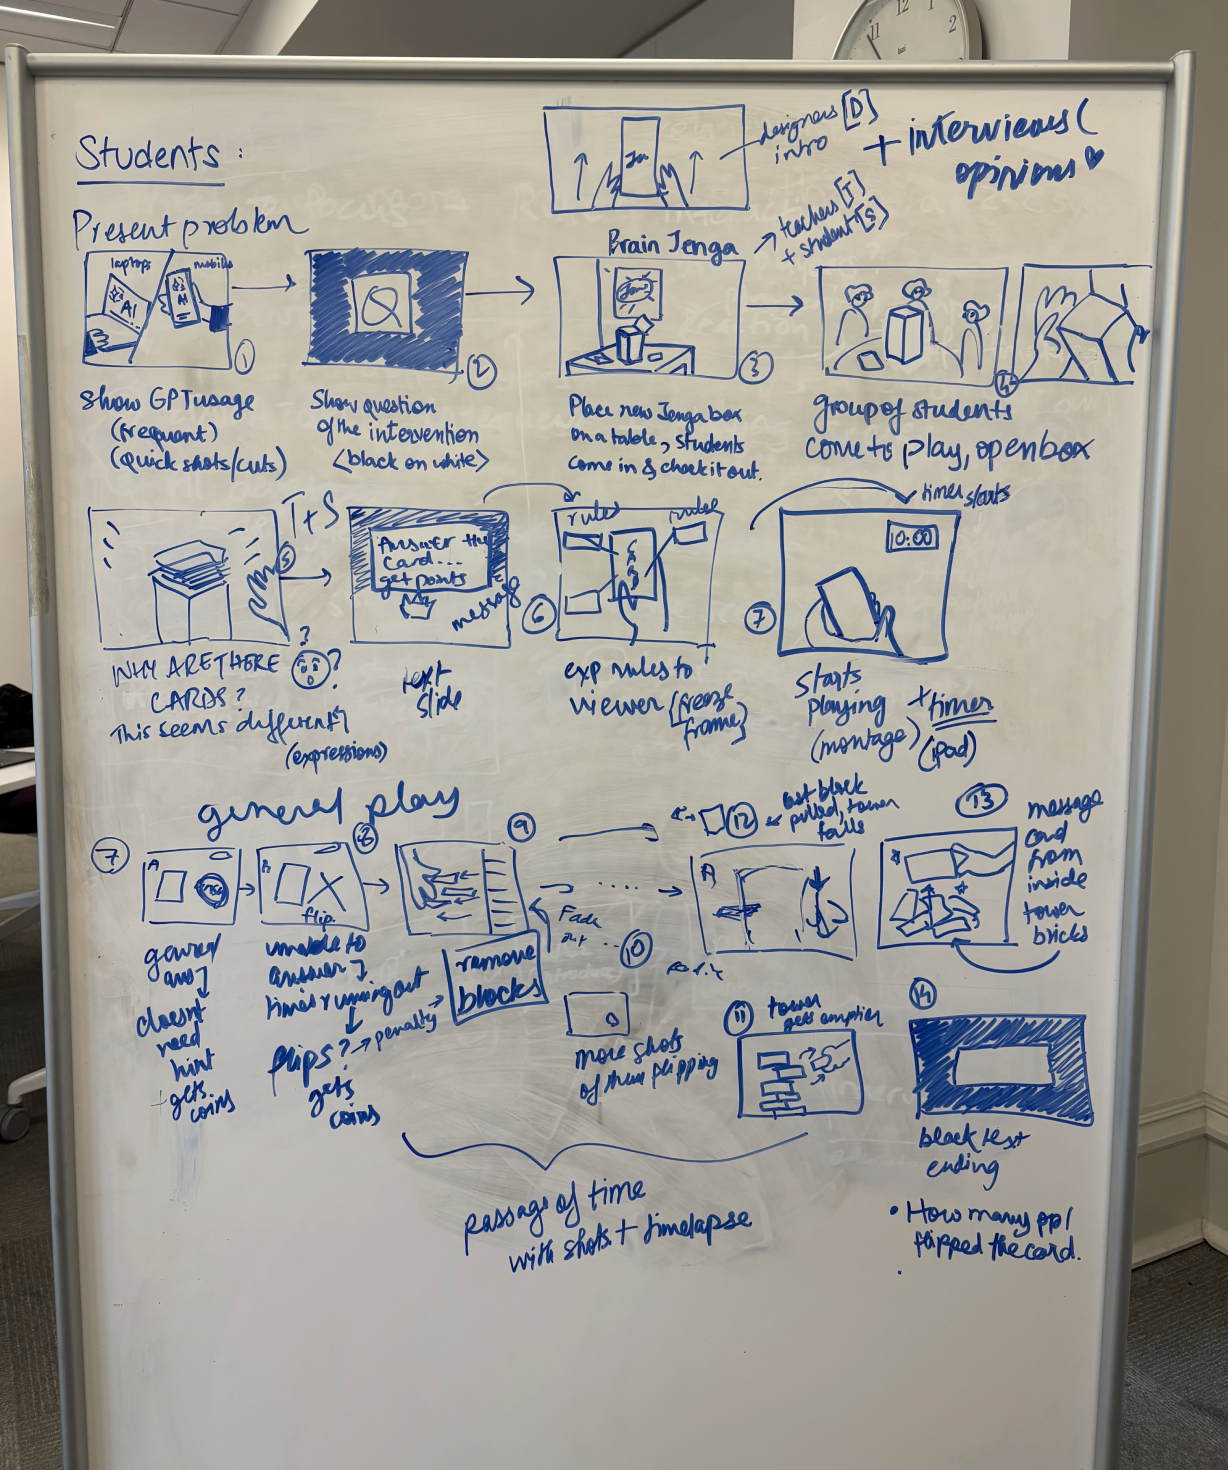 12
1
11
2
Students:
designers [D]
intro
+ interviews (
opinions
Present problem
Brain Jenga
teachers [T]
+ student [S]
laptops
mobiles
AI
AI
Q
1
2
3
4
Show GPT usage
(frequent)
(quick shots/cuts)
Show question
of the intervention
<black on white>
Place new Jenga box
on a table, students
come in & check it out.
group of students
come to play, open box
T+S
5
Answer the
card...
get points
message
rules
rules
6
timer starts
10:00
7
WHY ARE THERE
CARDS?
This seems different?
(expressions)
? ?
text
slide
exp rules to
viewer [freeze
frame]
starts
playing
(montage)
+ timer
(ipad)
general plays
7
A
8
flip.
9
12
last block
pulled, tower
falls
A
13
message
card
from
inside
tower
bricks
general
ans
doesnt
need
hint
+ gets
coins
unable to
answer
time running out
flips? → penalty
gets
coins
remove
blocks
Fade
out ...
10
more shots
of them flipping
11
tower
gets emptier
14
black text
ending
• How many ppl
flipped the card.
passage of time
with shots + timelapse